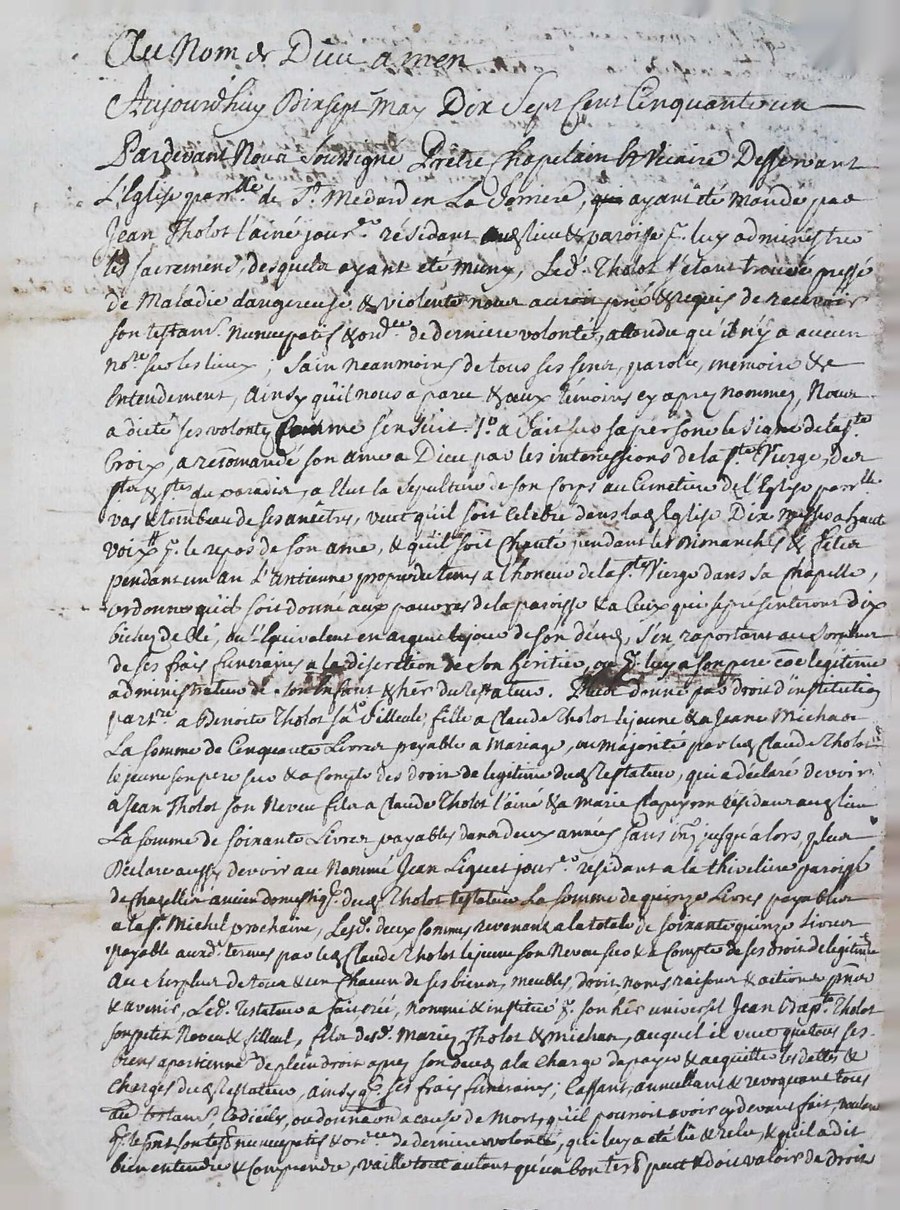 Au Nom de Dieu amen
Aujourdhuy Dixsept may Dix Sept Cent Cinquante un
Pardevant Nous Soussigné Prêtre Chapelain & Vicaire Desservant
L'Eglise par^lle de S^t Medard en La Forriere, ayant été Mandé par
Jean Tholot l'ainé jour^r résidant aud lieu & paroisse p^r luy administrer
les sacremens, desquels ayant eté muny, Led^t Tholot s'étant trouvé pressé
de Maladie dangereuse & violente nous auroit prié & requis de recevoir
son testam^t Nuncupatif & ord^ce de derniere volonté, attendu qu'il n'y a aucun
no^re sur les lieux, Sain neanmoins de tous ses sens, parole, memoire &
Entendement, Ainsy qu'il nous a paru & aux témoins cy aprez nommez, Nous
a dicté ses volontez Comme s'en suit. 1° a fait sur sa persone le Signe de la s^te
Croix, a recomandé son ame a Dieu par les intercessions de la s^te Vierge, des
s^ts & s^tes du paradis, a Elut la Sepulture de son Corps au Cimetiere de l'Eglise par^lle
vas & tombeau de ses ancêtres, veut qu'il soit Celebré dans lad Eglise Dix Messes a haute
voix p^r le repos de son ame, & qu'il soit Chanté pendant les Dimanches & fêtes
pendant un an L'antienne propre du tems a l'honeur de la s^te Vierge dans sa Chapelle,
ordonne qu'il soit donné aux pauvres de la paroisse & a Ceux qui se presenteront dix
bichez de blé, ou l'Equivalent en argent le jour de son décès, s'en raportant au Surplus
de ses frais funeraires a la discretion de son heritier, ou p^r luy a son pere côe legitime
administrateur de son Enfant & hér^r du testateur. Item donne par droit d'institution
part^re a Benoite Tholot sa filleule, fille a Claude Tholot le jeune & a Jeane Michard
La somme de Cinquante Livres payable a Mariage, ou majorité par led Claude Tholot
le jeune son pere sur & a Compte des droits de legitime dud testateur, qui a déclaré devoir
a Jean Tholot son Neveu fils a Claude Tholot l'ainé & a Marie résidant aud lieu
La somme de soixante Livres payables dans deux années Sans int^t jusqu'alors, plus
Declare aussy devoir au Nommé Jean Liquet jour^r résidant a la thiveliere paroisse
de Chazelles ancien domestiq^e dud Tholot testateur La somme de quinze Livres payables
a la s^t Michel prochaine, Lesd^s deux sommes revenant a la totale de soixante quinze Livres
payable auxd^s termes par led Claude Tholot le jeune son Neveu sur & a Compte de ses droits de legitime
Au Surplus de tous & un Chacun de ses biens, meubles, droits noms raisons & actions p^nts
& avenir, Led^t testateur a fait créé, nommé & institué p^r son hér^r universel Jean Bap^te Tholot
son petit Neveu & filleul, fils desd^s Marie Tholot & michan, auquel il veut que tous ses
biens apartienne de plein droit aprez son decez a la Charge de payer & acquitter les dettes &
Charges dud testateur, ainsy q^e ses frais funeraires; Cassant, annullant & revoquant tous
testam^s Codicils, ou donation a cause de Mort, qu'il pourroit avoir cy devant fait, voulant
q^e le p^nt soit son test^t nuncupatif & ord^ce de derniere volonté, qui luy a eté lû & relu, & qu'il a dit
bien entendre & Comprendre, vaille tout autant qu'un bon test^t peut & doit valoir de droit